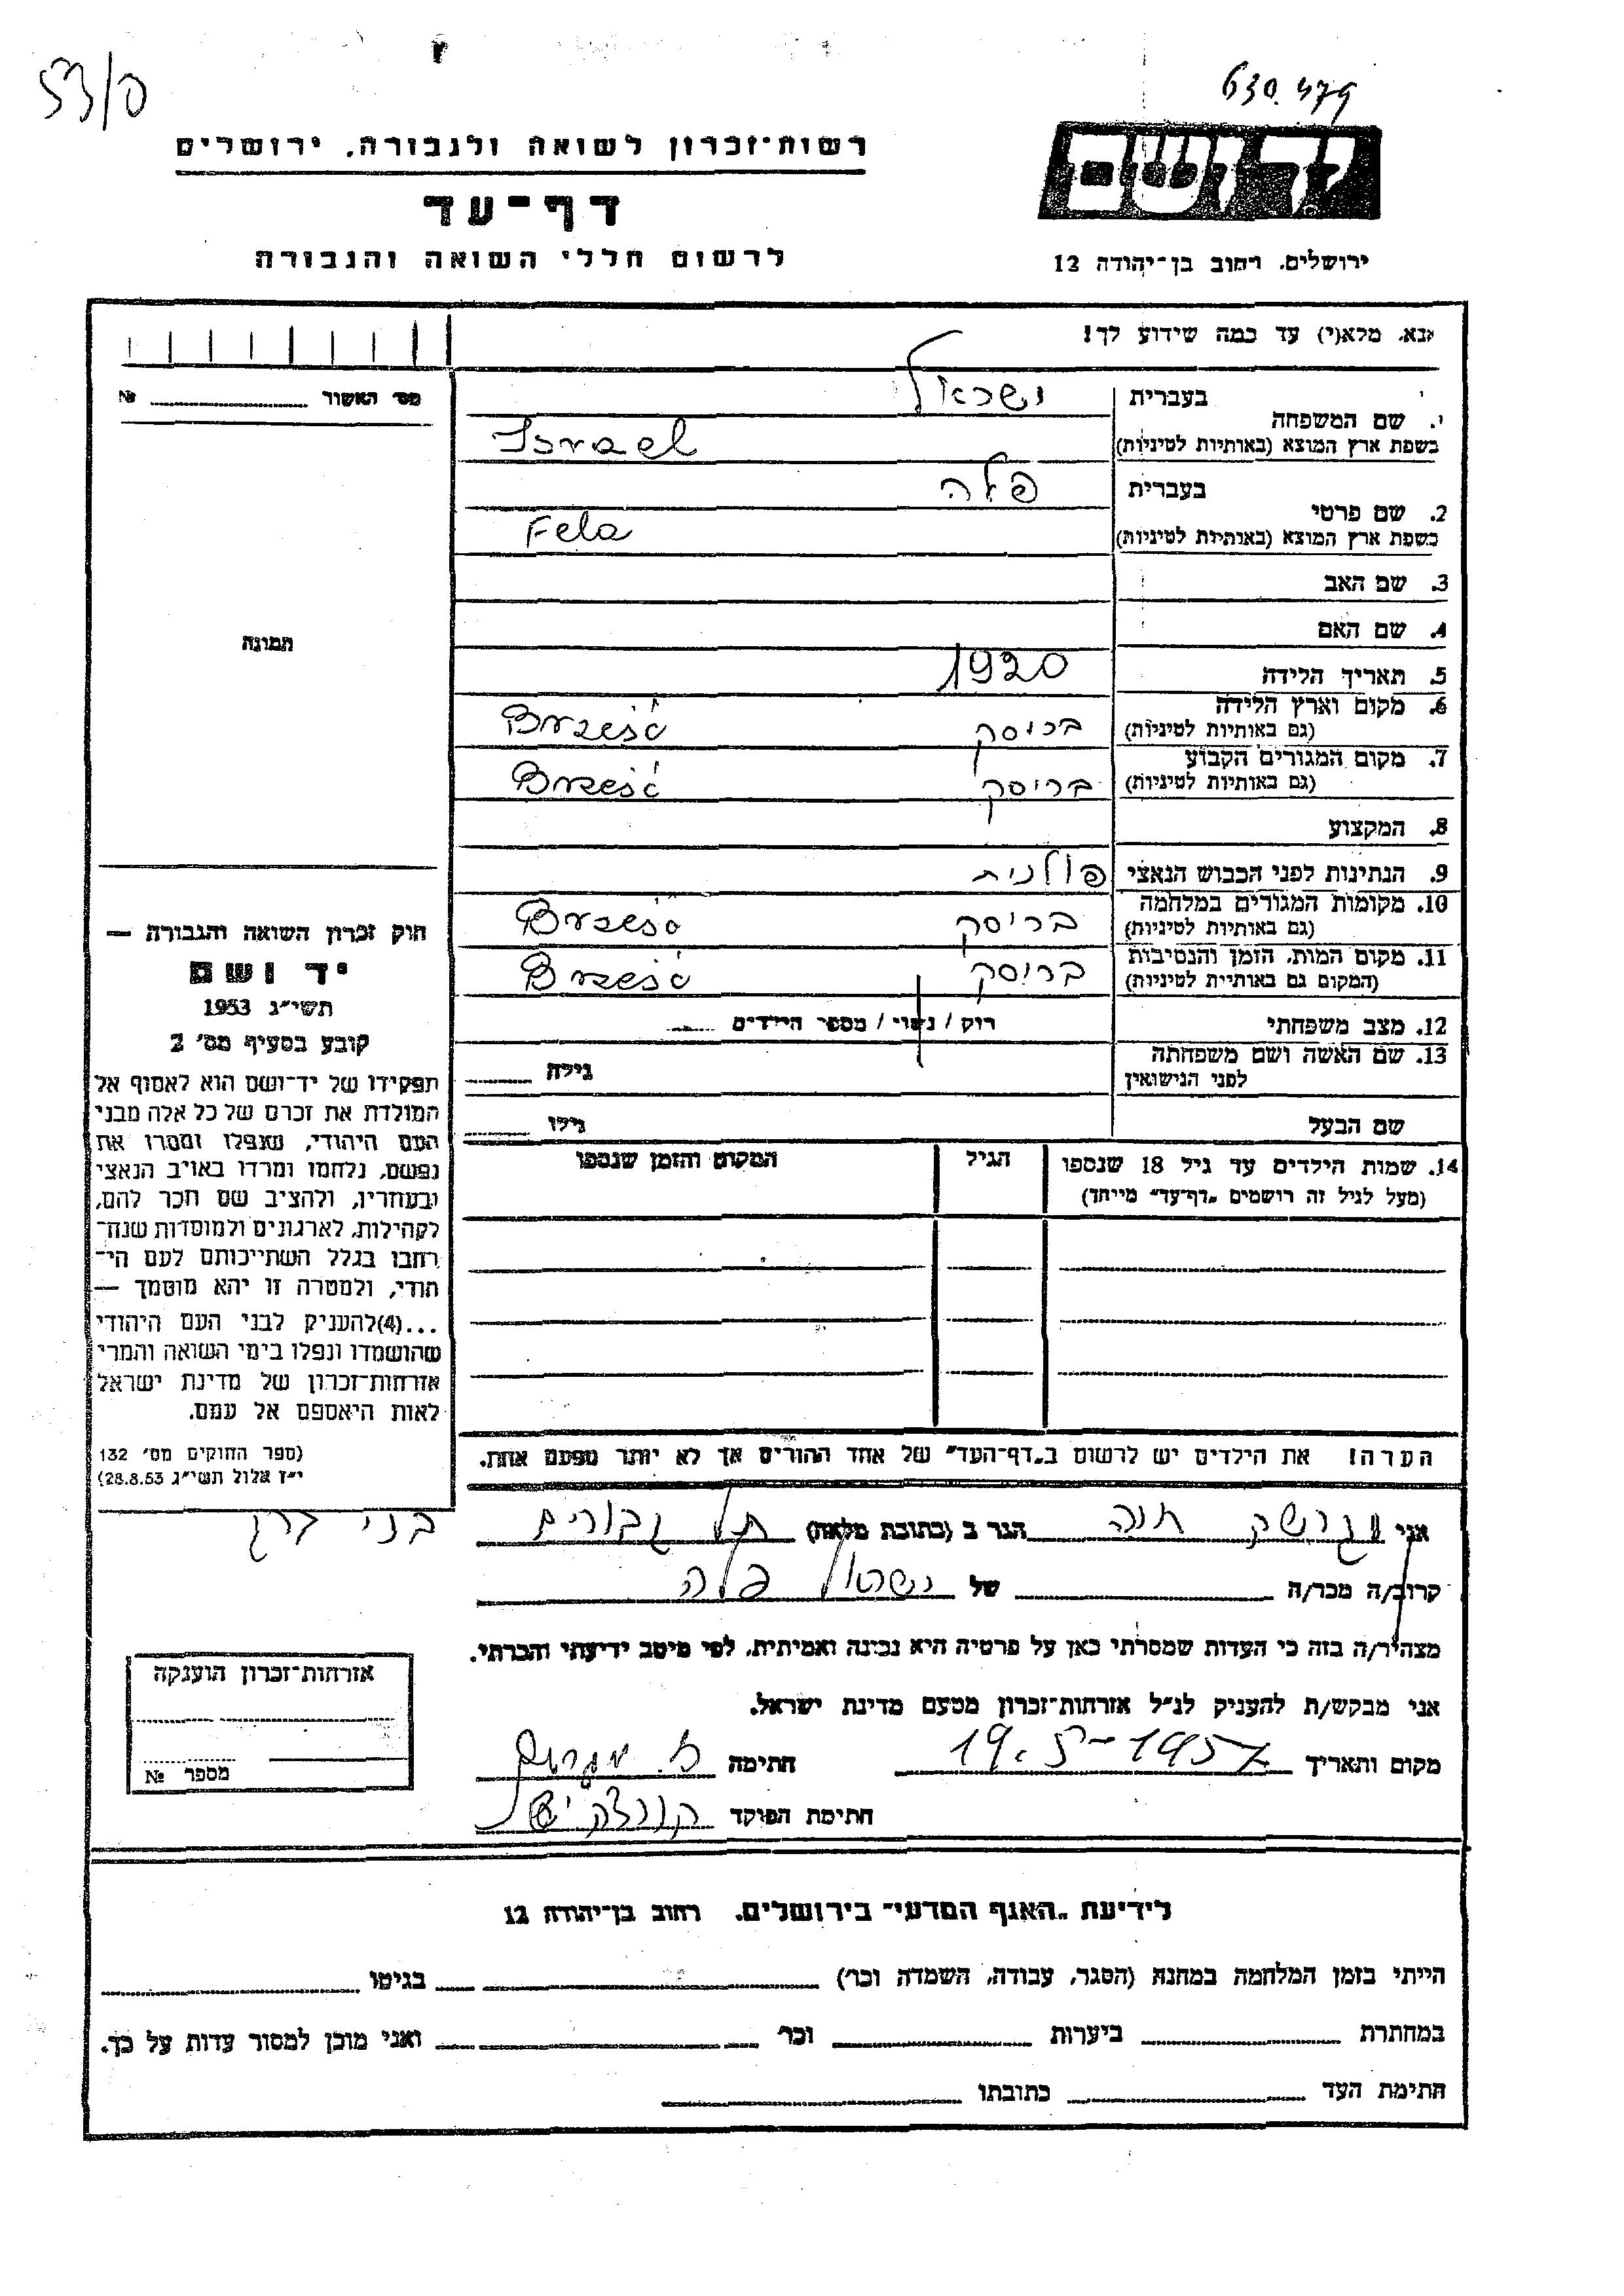 53/ס
630.479
רשות־זכרון לשואה ולגבורה, ירושלים
דף־עד
לרשום חללי השואה והגבורה
יד ושם
ירושלים, רחוב בן־יהודה 12
נא, מלא(י) עד כמה שידוע לך!
מס׳ האשור № 
1. שם המשפחה
בעברית ישראל
בשפת ארץ המוצא (באותיות לטיניות) Israel
2. שם פרטי
בעברית פלה
בשפת ארץ המוצא (באותיות לטיניות) Fela
3. שם האב
4. שם האם
5. תאריך הלידה 1920
6. מקום וארץ הלידה (גם באותיות לטיניות) בריסק Brześć
7. מקום המגורים הקבוע (גם באותיות לטיניות) בריסק Brześć
8. המקצוע
9. הנתינות לפני הכבוש הנאצי פולנית
10. מקומות המגורים במלחמה (גם באותיות לטיניות) בריסק Brześć
11. מקום המות, הזמן והנסיבות (המקום גם באותיות לטיניות) בריסק Brześć
12. מצב משפחתי רוק / נשוי / מספר הילדים
13. שם האשה ושם משפחתה לפני הנישואין גילה
שם הבעל גילו
14. שמות הילדים עד גיל 18 שנספו הגיל המקום והזמן שנספו
(מעל לגיל זה רושמים „דף־עד" מייחד)
תמונה
חוק זכרון השואה והגבורה —
יד ושם
תשי״ג 1953
קובע בסעיף מס׳ 2
תפקידו של יד־ושם הוא לאסוף אל
המולדת את זכרם של כל אלה מבני
העם היהודי, שנפלו ומסרו את
נפשם, נלחמו ומרדו באויב הנאצי
ובעוזריו, ולהציב שם וזכר להם,
לקהילות, לארגונים ולמוסדות שנח־
רבו בגלל השתייכותם לעם הי־
הודי, ולמטרה זו יהא מוסמך —
...(4)להעניק לבני העם היהודי
שהושמדו ונפלו בימי השואה והמרי
אזרחות־זכרון של מדינת ישראל
לאות היאספם אל עמם.
(ספר החוקים מס׳ 132
י״ז אלול תשי״ג 28.8.53)
הערה! את הילדים יש לרשום ב„דף־העד" של אחד ההורים אך לא יותר מפעם אחת.
אני חנה הגר ב (כתובת מלאה) תל גבורים בני ברק
קרוב/ה מכר/ה של ישראל פלה
מצהיר/ה בזה כי העדות שמסרתי כאן על פרטיה היא נכונה ואמיתית, לפי מיטב ידיעתי והכרתי.
אני מבקש/ת להעניק לנ״ל אזרחות־זכרון מטעם מדינת ישראל.
מקום ותאריך 19.5-1957 חתימה
חתימת הפוקד
אזרחות־זכרון הוענקה
מספר №
לידיעת „האגף המדעי" בירושלים, רחוב בן־יהודה 12
הייתי בזמן המלחמה במחנה (הסגר, עבודה, השמדה וכו׳) בגיטו
במחתרת ביערות וכו׳ ואני מוכן למסור עדות על כך.
חתימת העד כתובתו